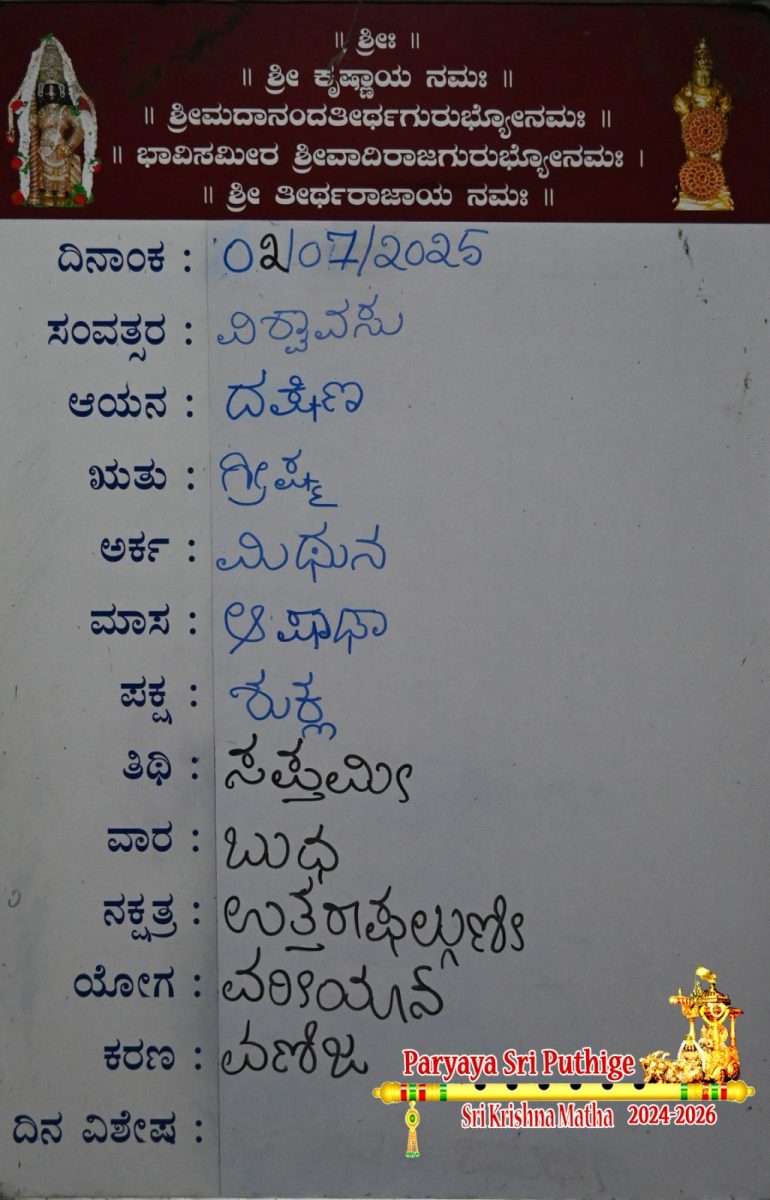 ॥ ಶ್ರೀಃ ॥
॥ ಶ್ರೀ ಕೃಷ್ಣಾಯ ನಮಃ ॥
॥ ಶ್ರೀಮದಾನಂದತೀರ್ಥಗುರುಭ್ಯೋನಮಃ ॥
॥ ಭಾವಿಸಮೀರ ಶ್ರೀವಾದಿರಾಜಗುರುಭ್ಯೋನಮಃ ।
॥ ಶ್ರೀ ತೀರ್ಥರಾಜಾಯ ನಮಃ ॥
ದಿನಾಂಕ : 02/07/2025
ಸಂವತ್ಸರ : ವಿಶ್ವಾವಸು
ಆಯನ : ದಕ್ಷಿಣ
ಋತು : ಗ್ರೀಷ್ಮ
ಅರ್ಕ : ಮಿಥುನ
ಮಾಸ : ಆಷಾಢಾ
ಪಕ್ಷ : ಶುಕ್ಲ
ತಿಥಿ : ಸಪ್ತಮೀ
ವಾರ : ಬುಧ
ನಕ್ಷತ್ರ : ಉತ್ತರಾಫಲ್ಗುಣೀ
ಯೋಗ : ವರೀಯಾನ್
ಕರಣ : ವಣಿಜ
ದಿನ ವಿಶೇಷ :
Paryaya Sri Puthige
Sri Krishna Matha 2024-2026